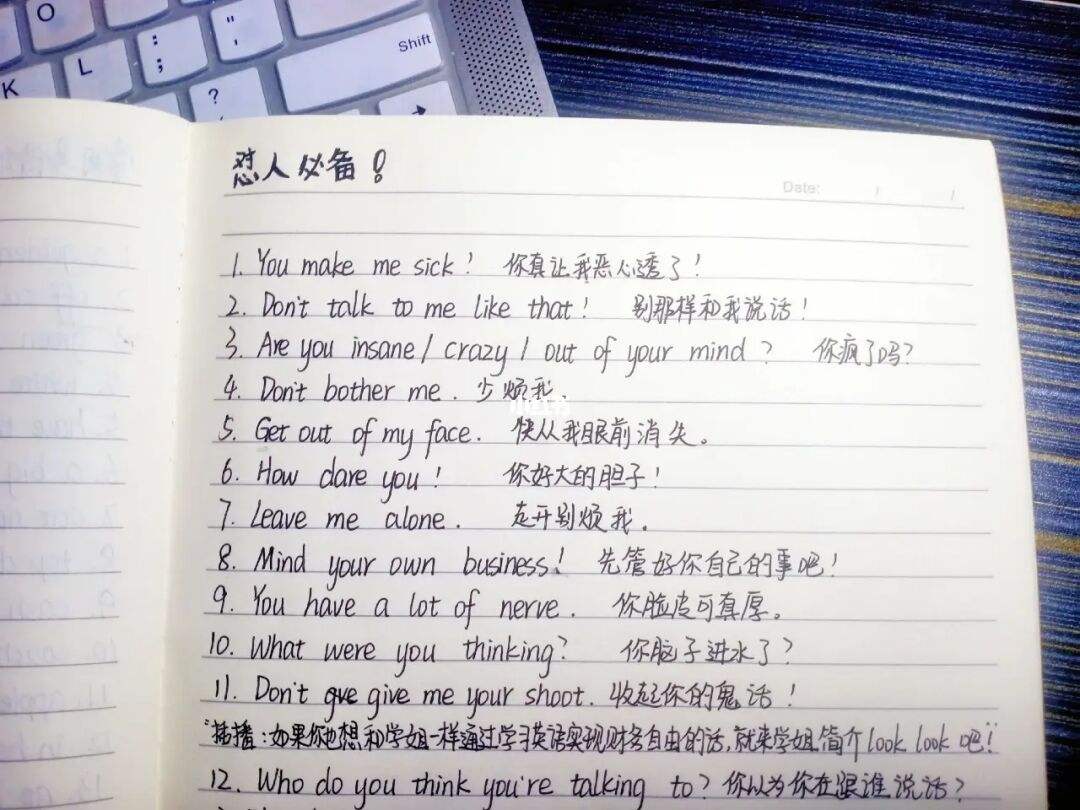 O
K
L
: ;
" '
Shift
?
怼人必备！
Date: / /
1. You make me sick! 你真让我恶心透了！
2. Don't talk to me like that! 别那样和我说话！
3. Are you insane / crazy / out of your mind? 你疯了吗？
4. Don't bother me. 少烦我.
小红书
5. Get out of my face. 快从我眼前消失。
6. How dare you! 你好大的胆子！
7. Leave me alone. 走开别烦我.
8. Mind your own business! 先管好你自己的事吧！
9. You have a lot of nerve. 你脸皮可真厚。
10. What were you thinking? 你脑子进水了？
11. Don't give me your shoot. 收起你的鬼话！
"插播：如果你也想和学姐一样通过学习英语实现财务自由的话，就来学姐简介look look吧！"
12. Who do you think you're talking to? 你以为你在跟谁说话？